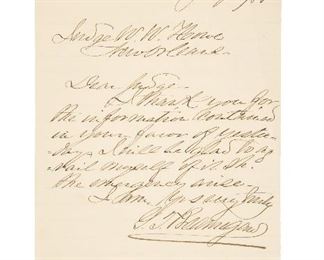 Judge W. W. Howe
New Orleans
Dear Judge
I thank you for
the information contained
in your favor of yester-
day. I will be glad to a-
vail myself of it sh
the emergency arise
I am yours very truly